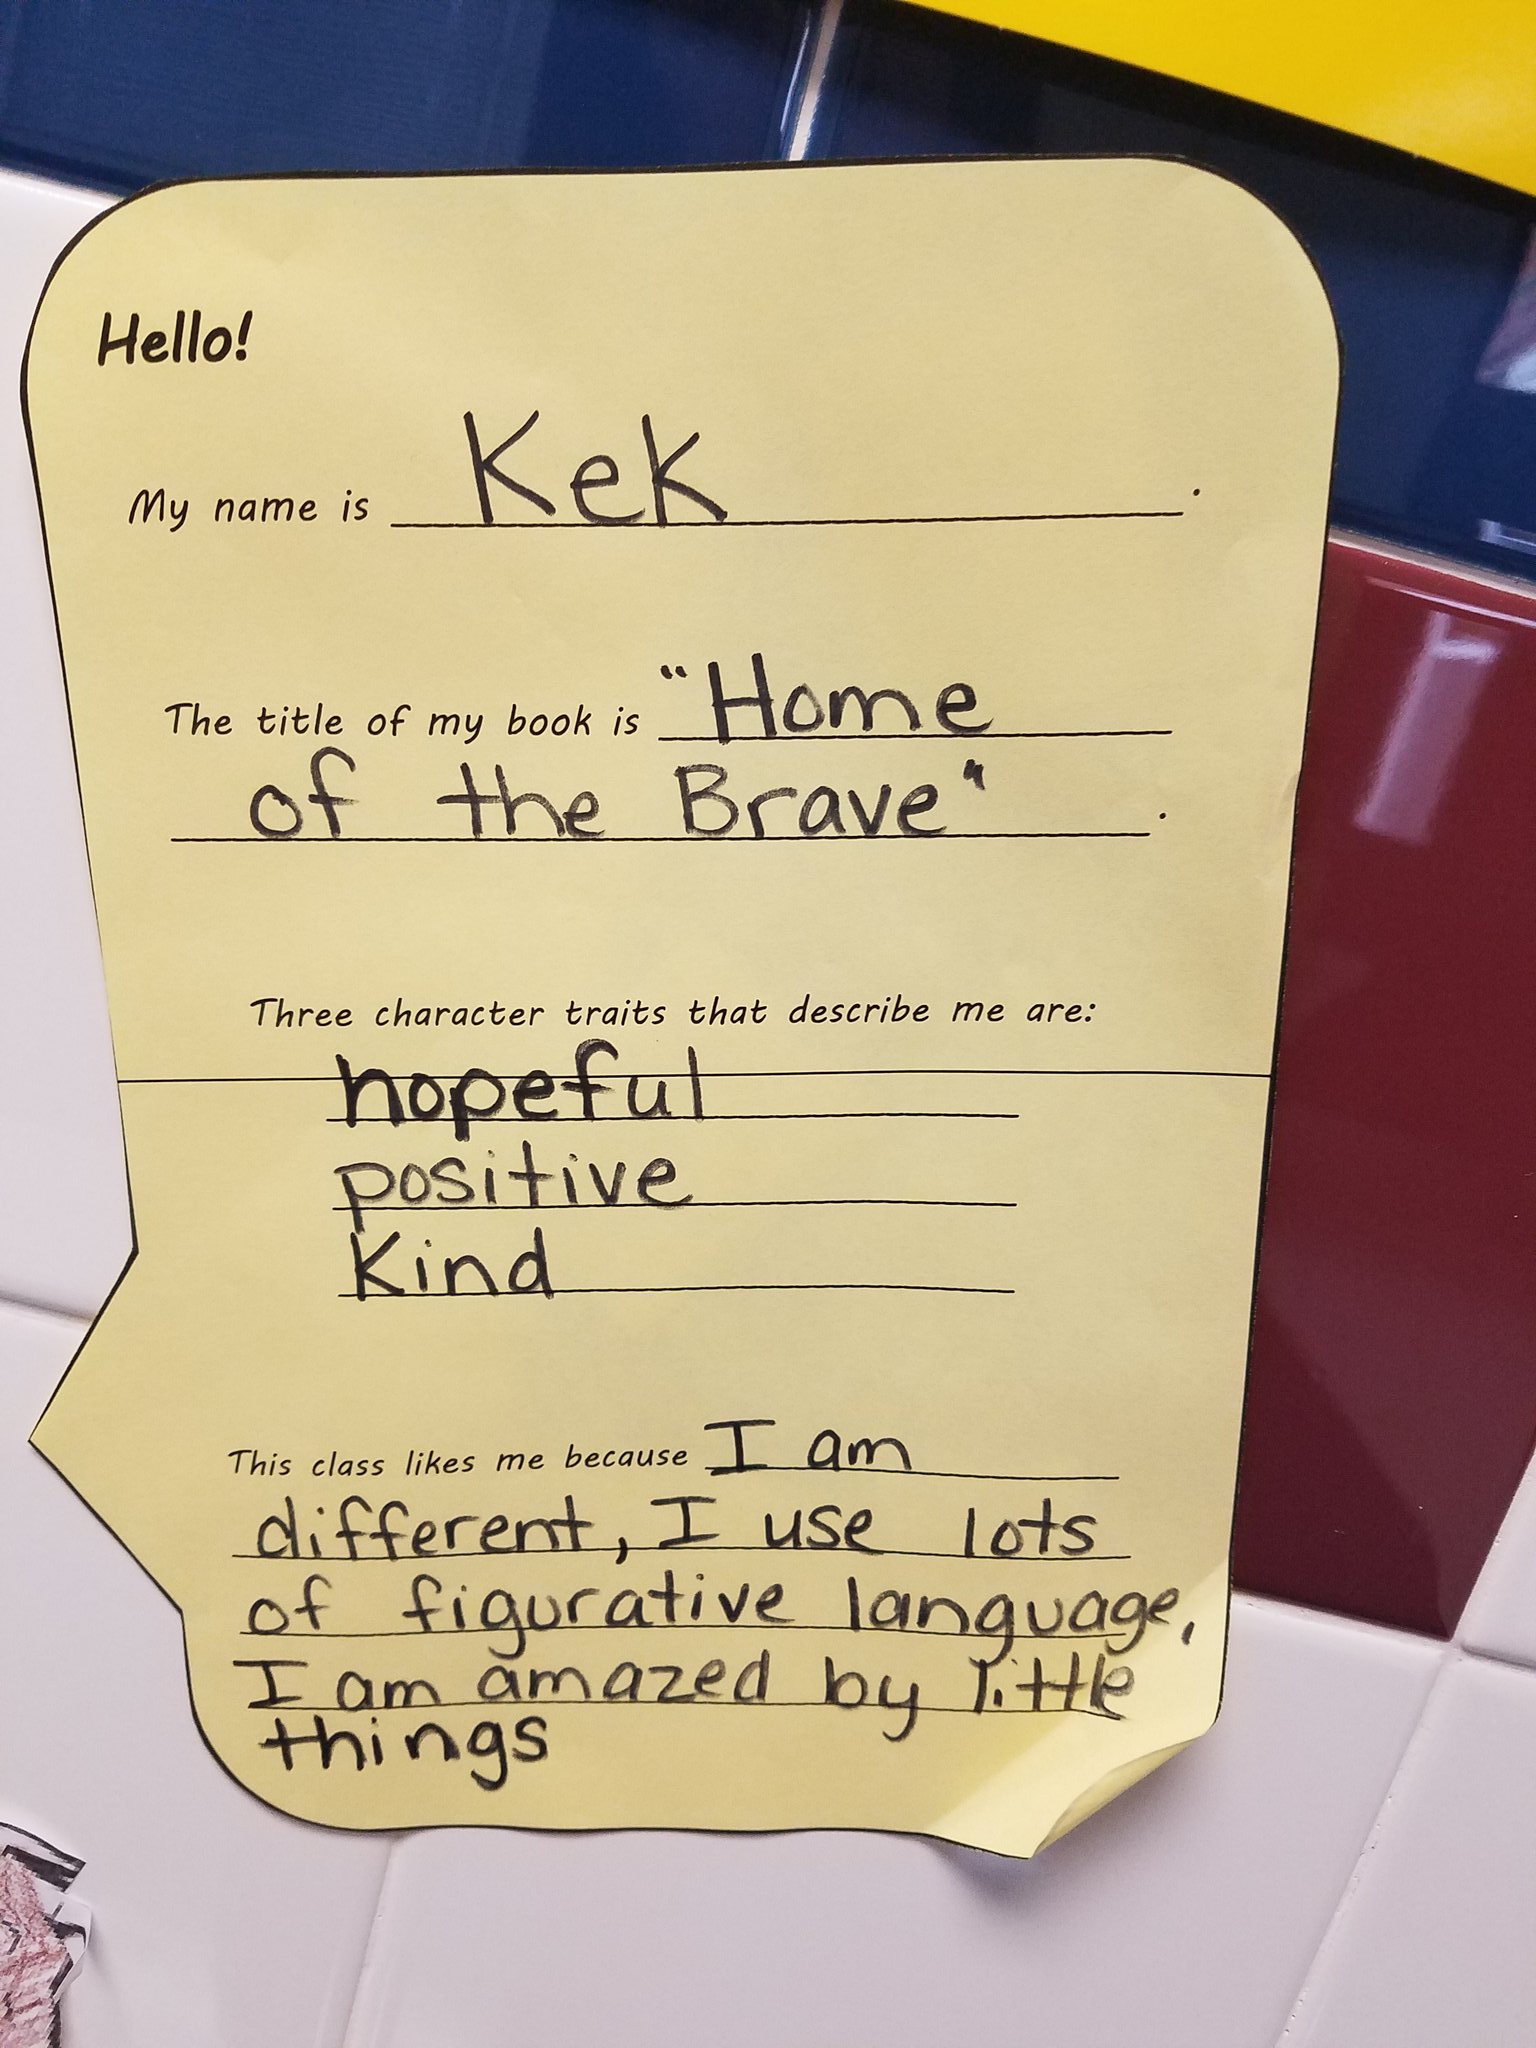 Hello!
My name is Kek.
The title of my book is "Home
of the Brave".
Three character traits that describe me are:
hopeful
positive
Kind
This class likes me because I am
different, I use lots
of figurative language,
I am amazed by little
things